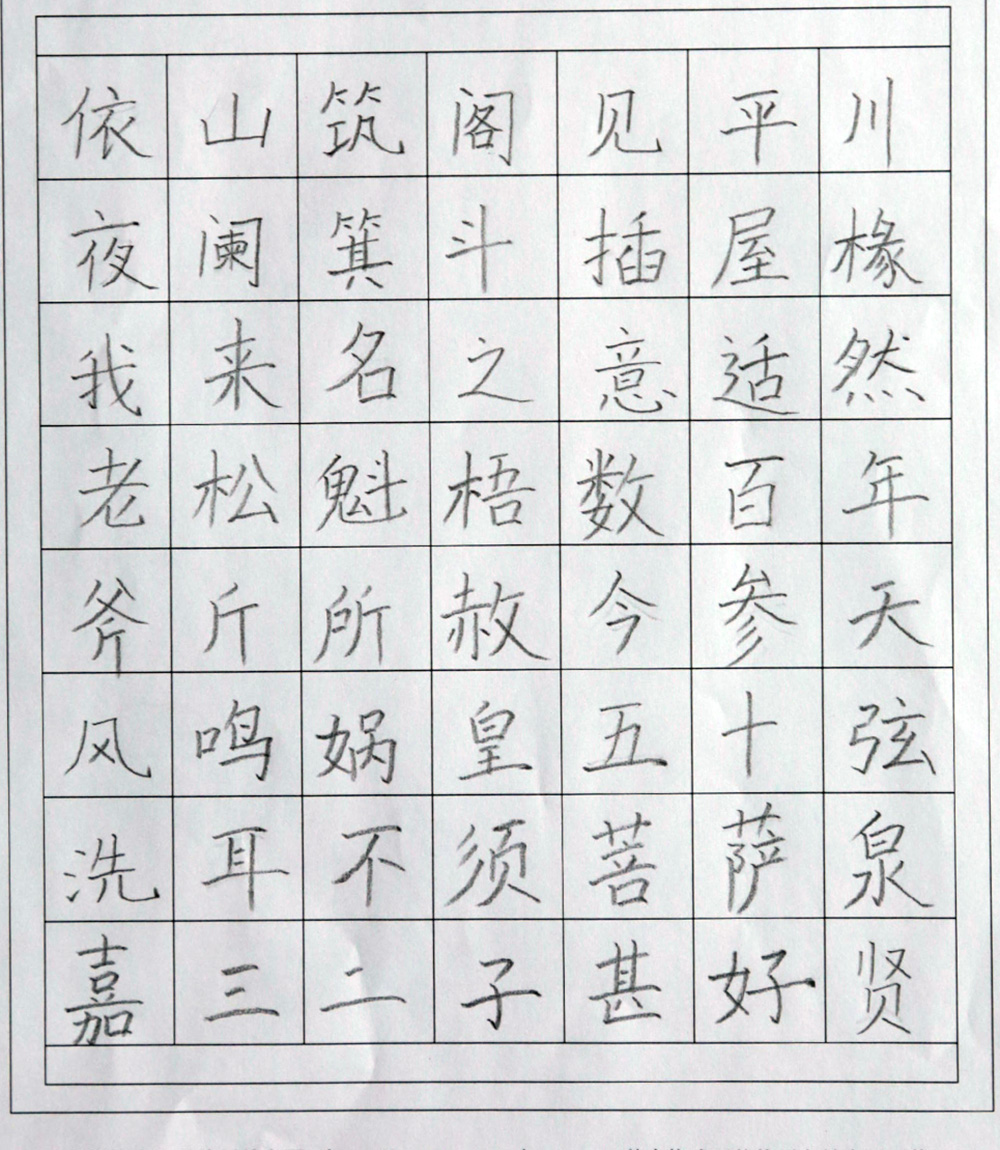 依山筑阁见平川
夜阑箕斗插屋椽
我来名之意适然
老松魁梧数百年
斧斤所赦今参天
风鸣娲皇五十弦
洗耳不须菩萨泉
嘉三二子甚好贤